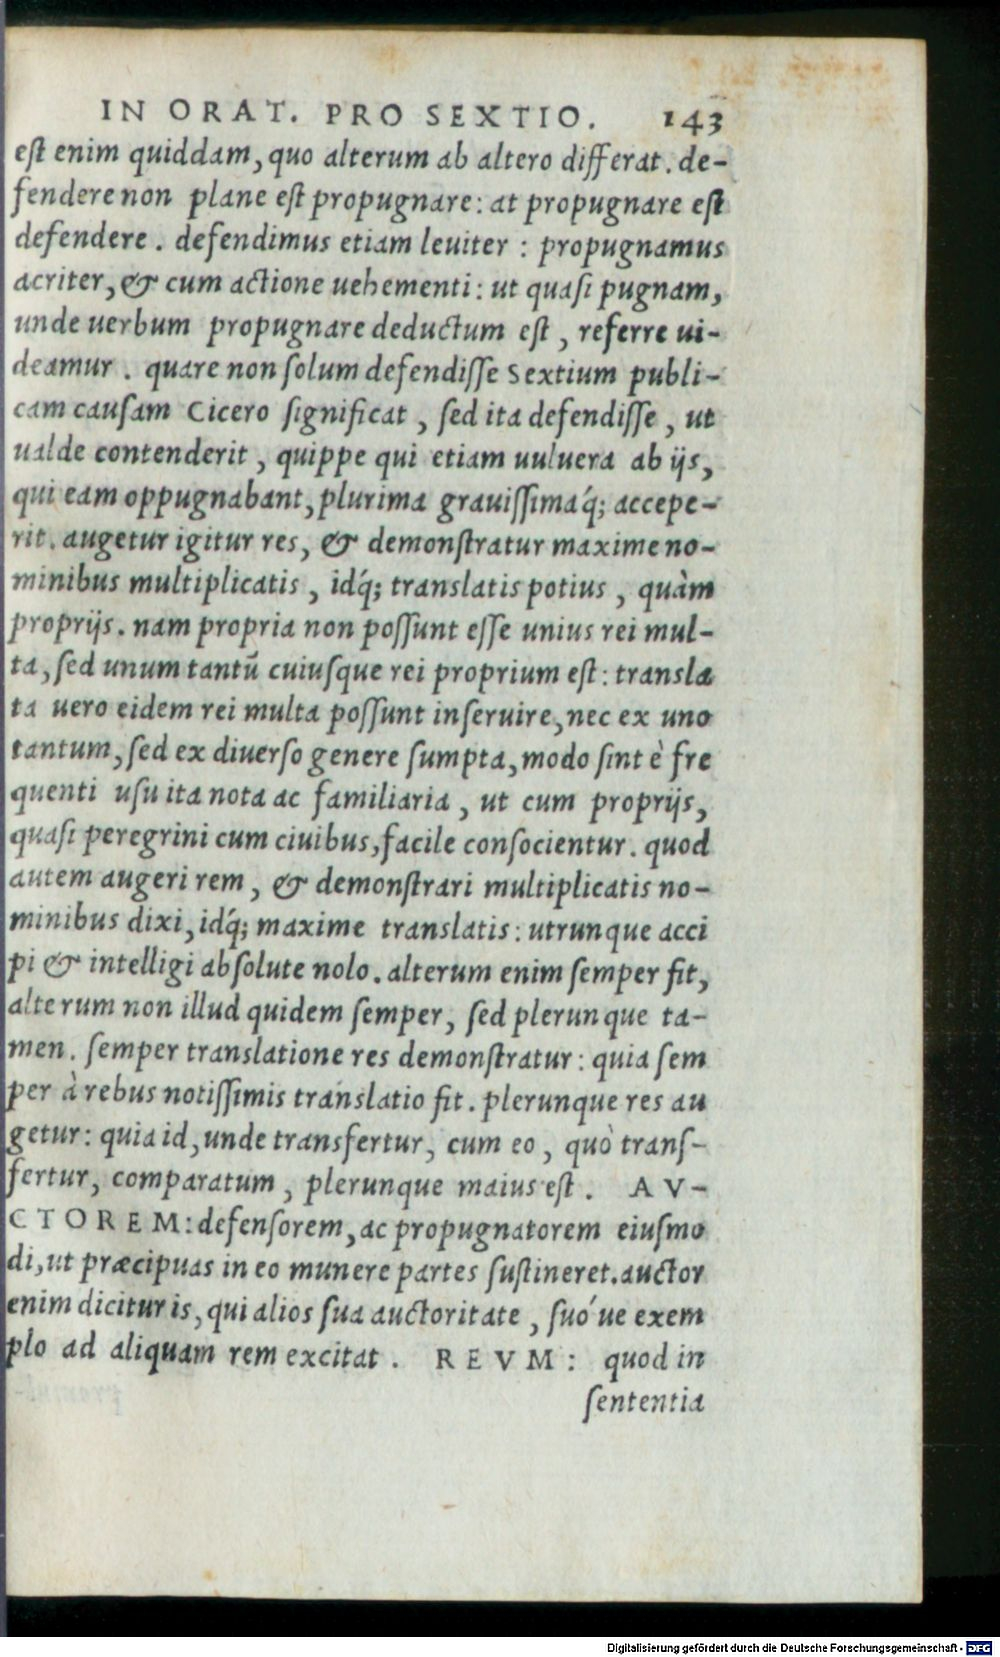 IN ORAT. PRO SEXTIO. 143
est enim quiddam, quo alterum ab altero differat. de-
fendere non plane est propugnare: at propugnare est
defendere. defendimus etiam leuiter: propugnamus
acriter, & cum actione uehementi: ut quasi pugnam,
unde uerbum propugnare deductum est, referre ui-
deamur. quare non solum defendisse Sextium publi-
cam causam Cicero significat, sed ita defendisse, ut
ualde contenderit, quippe qui etiam uuluera ab ijs,
qui eam oppugnabant, plurima grauissimaq́; accepe-
rit. augetur igitur res, & demonstratur maxime no-
minibus multiplicatis, idq́; translatis potius, quàm
proprijs. nam propria non possunt esse unius rei mul-
ta, sed unum tantũ cuiusque rei proprium est: transla
ta uero eidem rei multa possunt inseruire, nec ex uno
tantum, sed ex diuerso genere sumpta, modo sint è fre
quenti usu ita nota ac familiaria, ut cum proprijs,
quasi peregrini cum ciuibus, facile consocientur. quod
autem augeri rem, & demonstrari multiplicatis no-
minibus dixi, idq́; maxime translatis: utrunque acci
pi & intelligi absolute nolo. alterum enim semper fit,
alterum non illud quidem semper, sed plerunque ta-
men. semper translatione res demonstratur: quia sem
per à rebus notissimis translatio fit. plerunque res au
getur: quia id, unde transfertur, cum eo, quò trans-
fertur, comparatum, plerunque maius est. AV-
CTOREM: defensorem, ac propugnatorem eiusmo
di, ut præcipuas in eo munere partes sustineret. auctor
enim dicitur is, qui alios sua auctoritate, suó ue exem
plo ad aliquam rem excitat. REVM: quod in
sententia
Digitalisierung gefördert durch die Deutsche Forschungsgemeinschaft - DFG